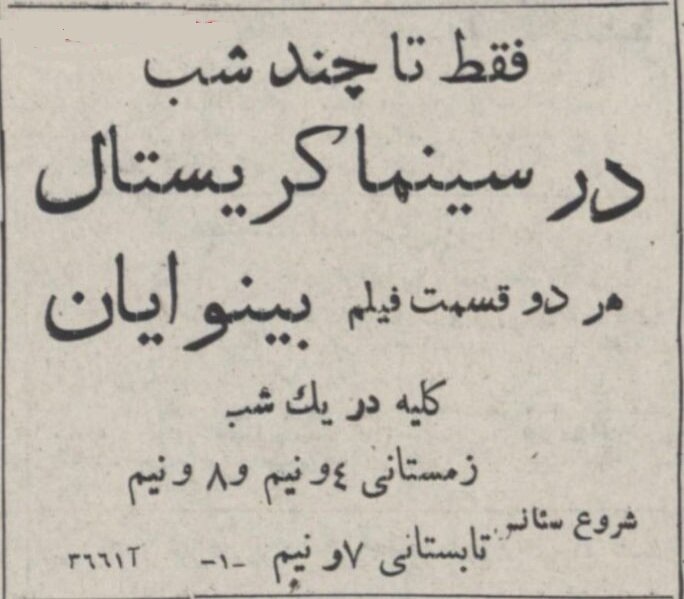 فقط تا چند شب
در سینما کریستال
هر دو قسمت فیلم بینوایان
کلیه در یك شب
زمستانی ٤ و نیم و ۸ و نیم
شروع سئانس
تابستانی ۷ و نیم -۱- آ ۳٦٦۱